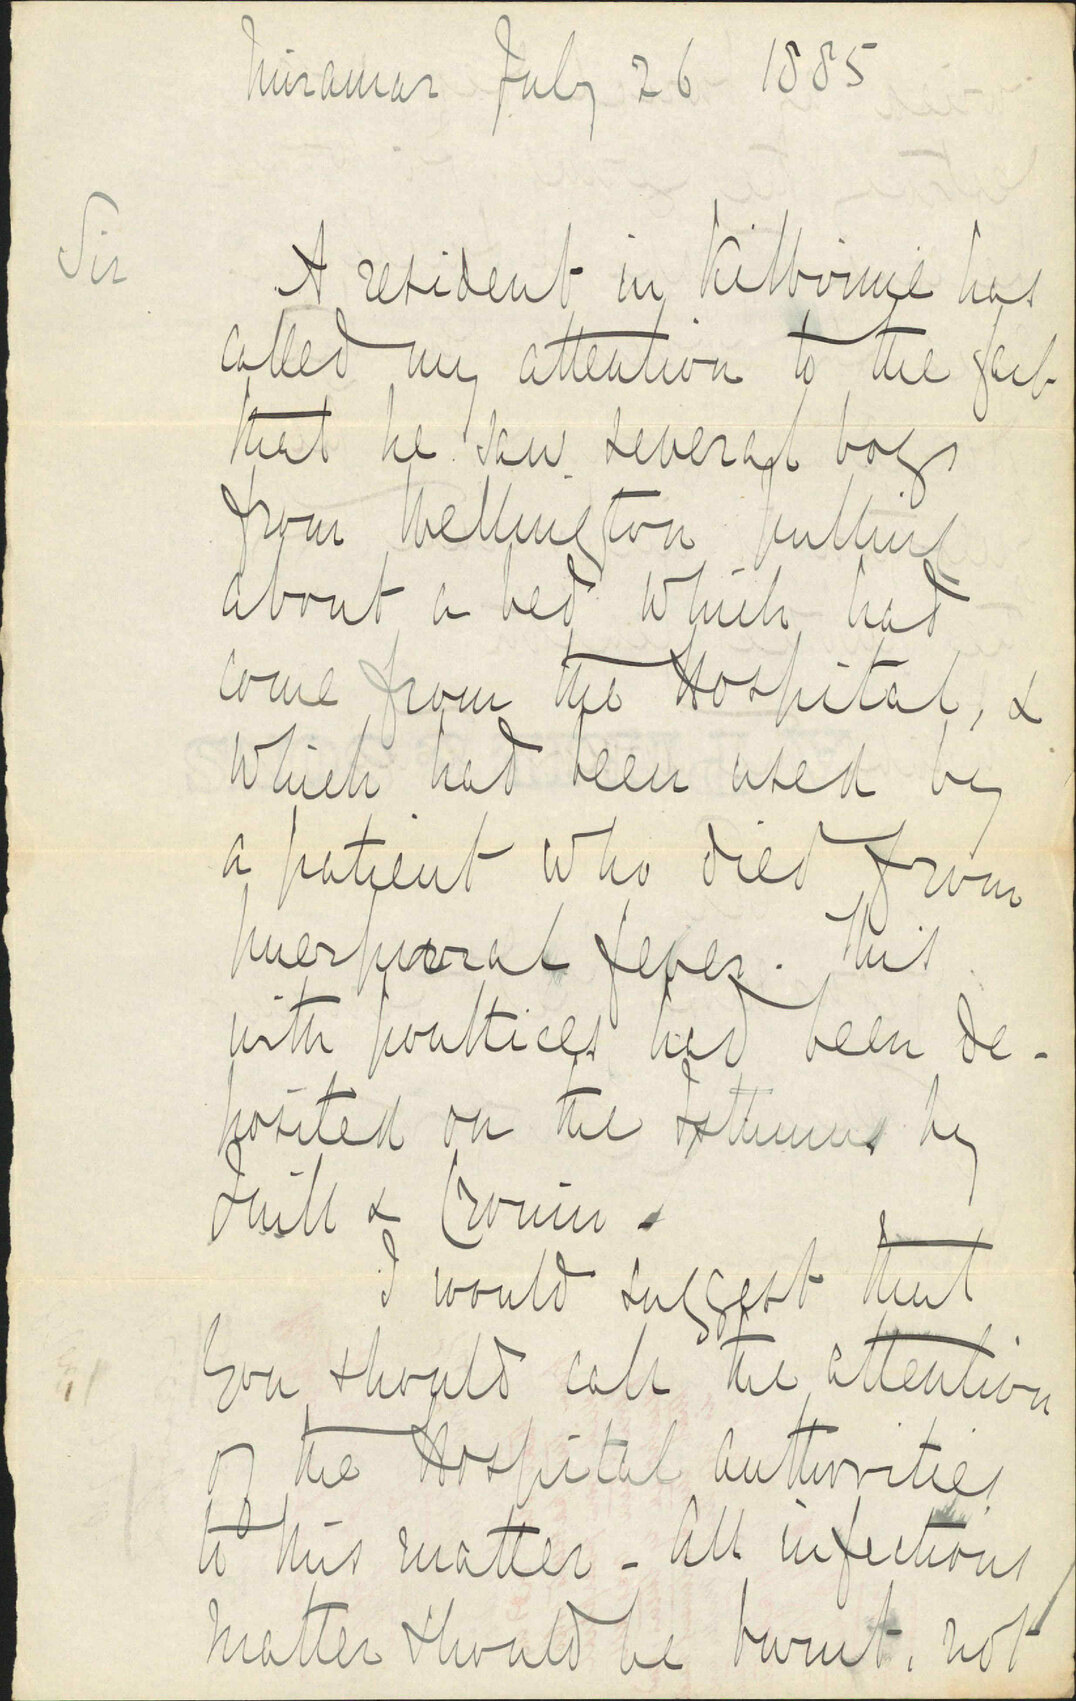 Miramar July 26 1885
Sir
A resident in Kilbirnie has
called my attention to the fact
that he saw several boys
from Wellington pulling
about a bed which had
come from the Hospital, &
which had been used by
a patient who died from
puerperal fever. This
with poultices had been de-
posited on the Isthmus by
& Cronin.
I would suggest that
you should call the attention
of the Hospital authorities
to this matter - All infectious
matter should be burnt, not